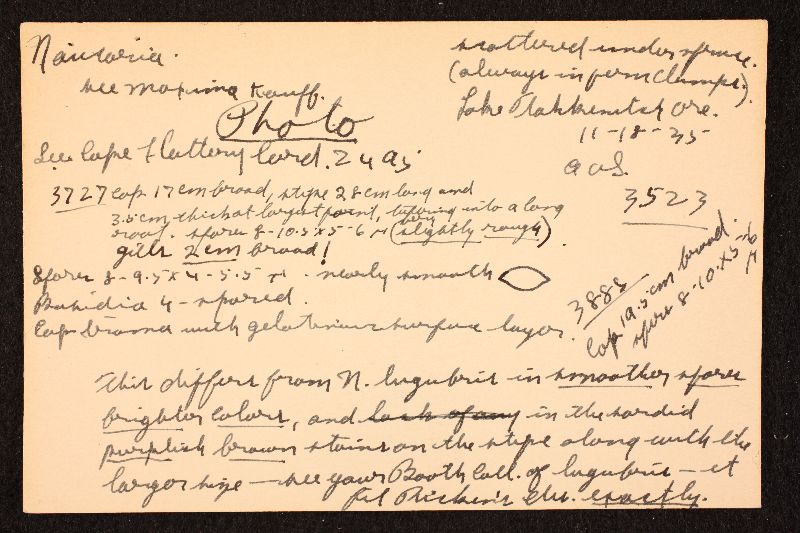 Naucoria.
see maxima Kauff.
Photo
scattered under spruce.
(always in firm clumps.)
Lake Tahkenitch Ore.
11-18-35
See Cape Flattery Card. 2495
3523
3727 cap 17 cm broad, stipe 28 cm long and
3.5 cm thick at largest point, tapering into a long
root. spores 8-10.5 x 5-6 µ (very slightly rough).
gills 2 cm broad!
Spores 8-9.5 x 4-5.5 µ. nearly smooth
Basidia 4-spored.
Cap trama with gelatinous surface layer.
3888
Cap 19.5 cm broad.
spores 8-10. x 5-6 µ
This differs from N. lugubris in smoother spores
brighter colors, and lack of any in the sordid
purplish brown stains on the stipe along with the
larger size — see your Booth Coll. of lugubris — it
fit Ricken's des. exactly.